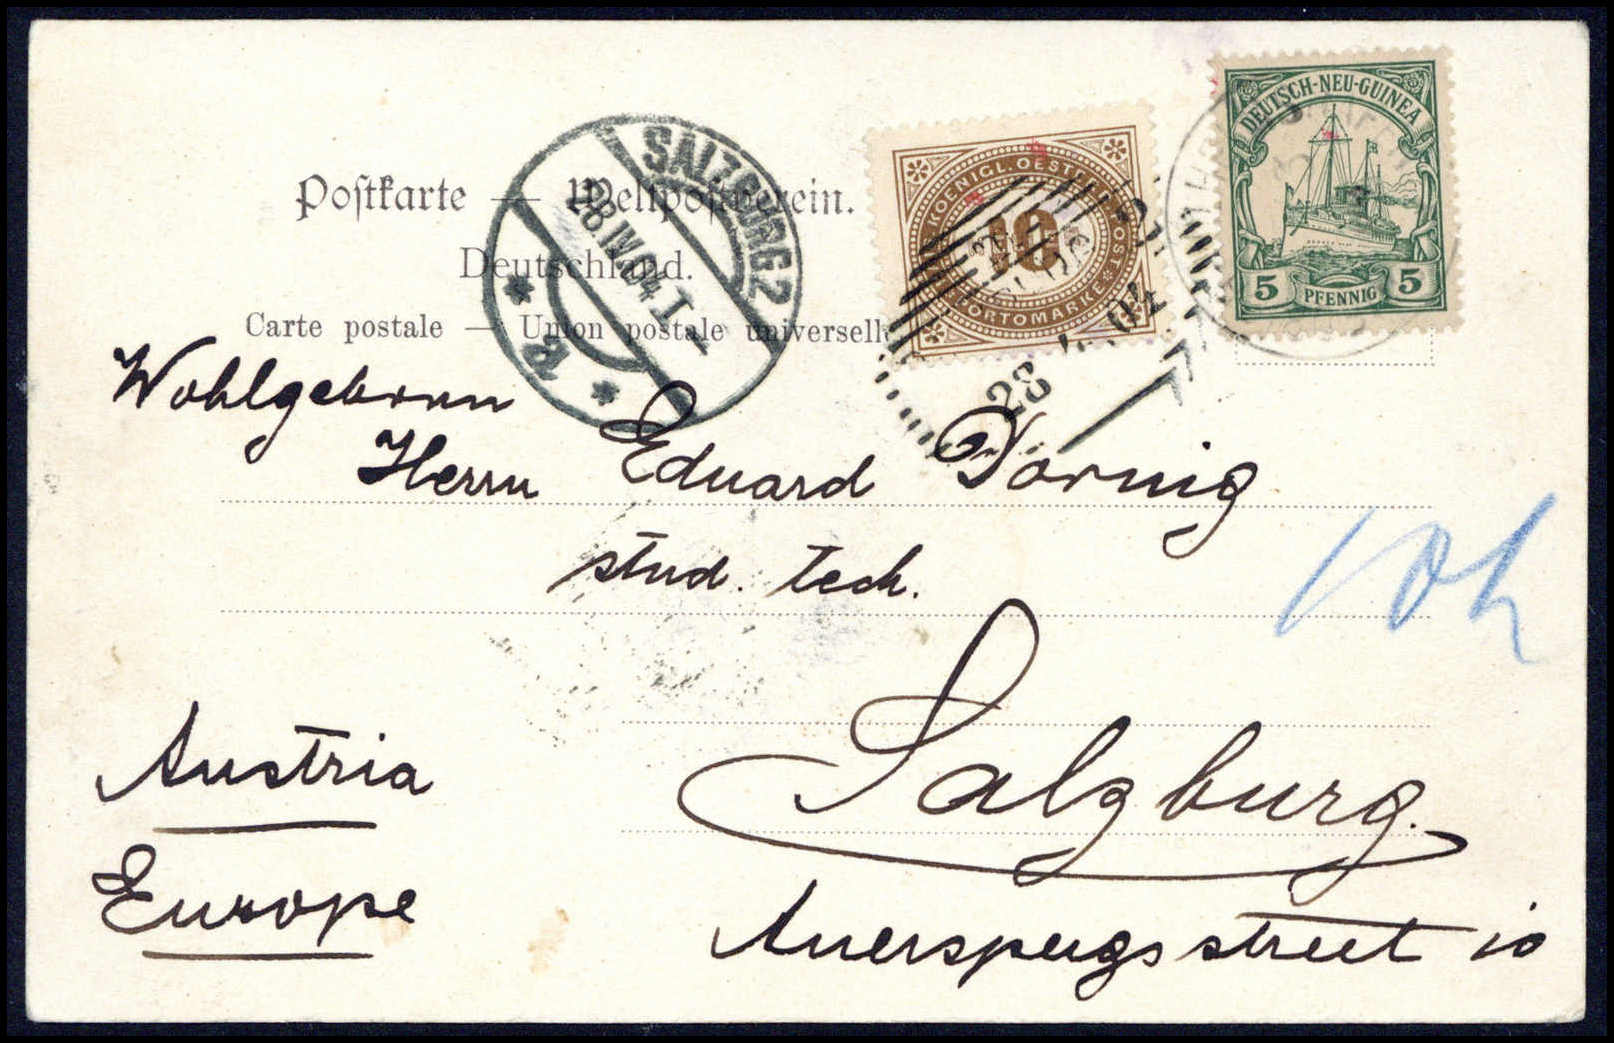 Postkarte — Weltpostverein.
Deutschland.
Carte postale — Union postale universelle
SALZBURG 2
28.IV.04.I-
DEUTSCH-NEU-GUINEA
5 PFENNIG 5
10
PORTOMARKE
28 4 04
Wohlgeboren
Herrn Eduard Dornig
stud. tech.
Salzburg.
Auerspergsstreet 10
Austria
Europe
10h